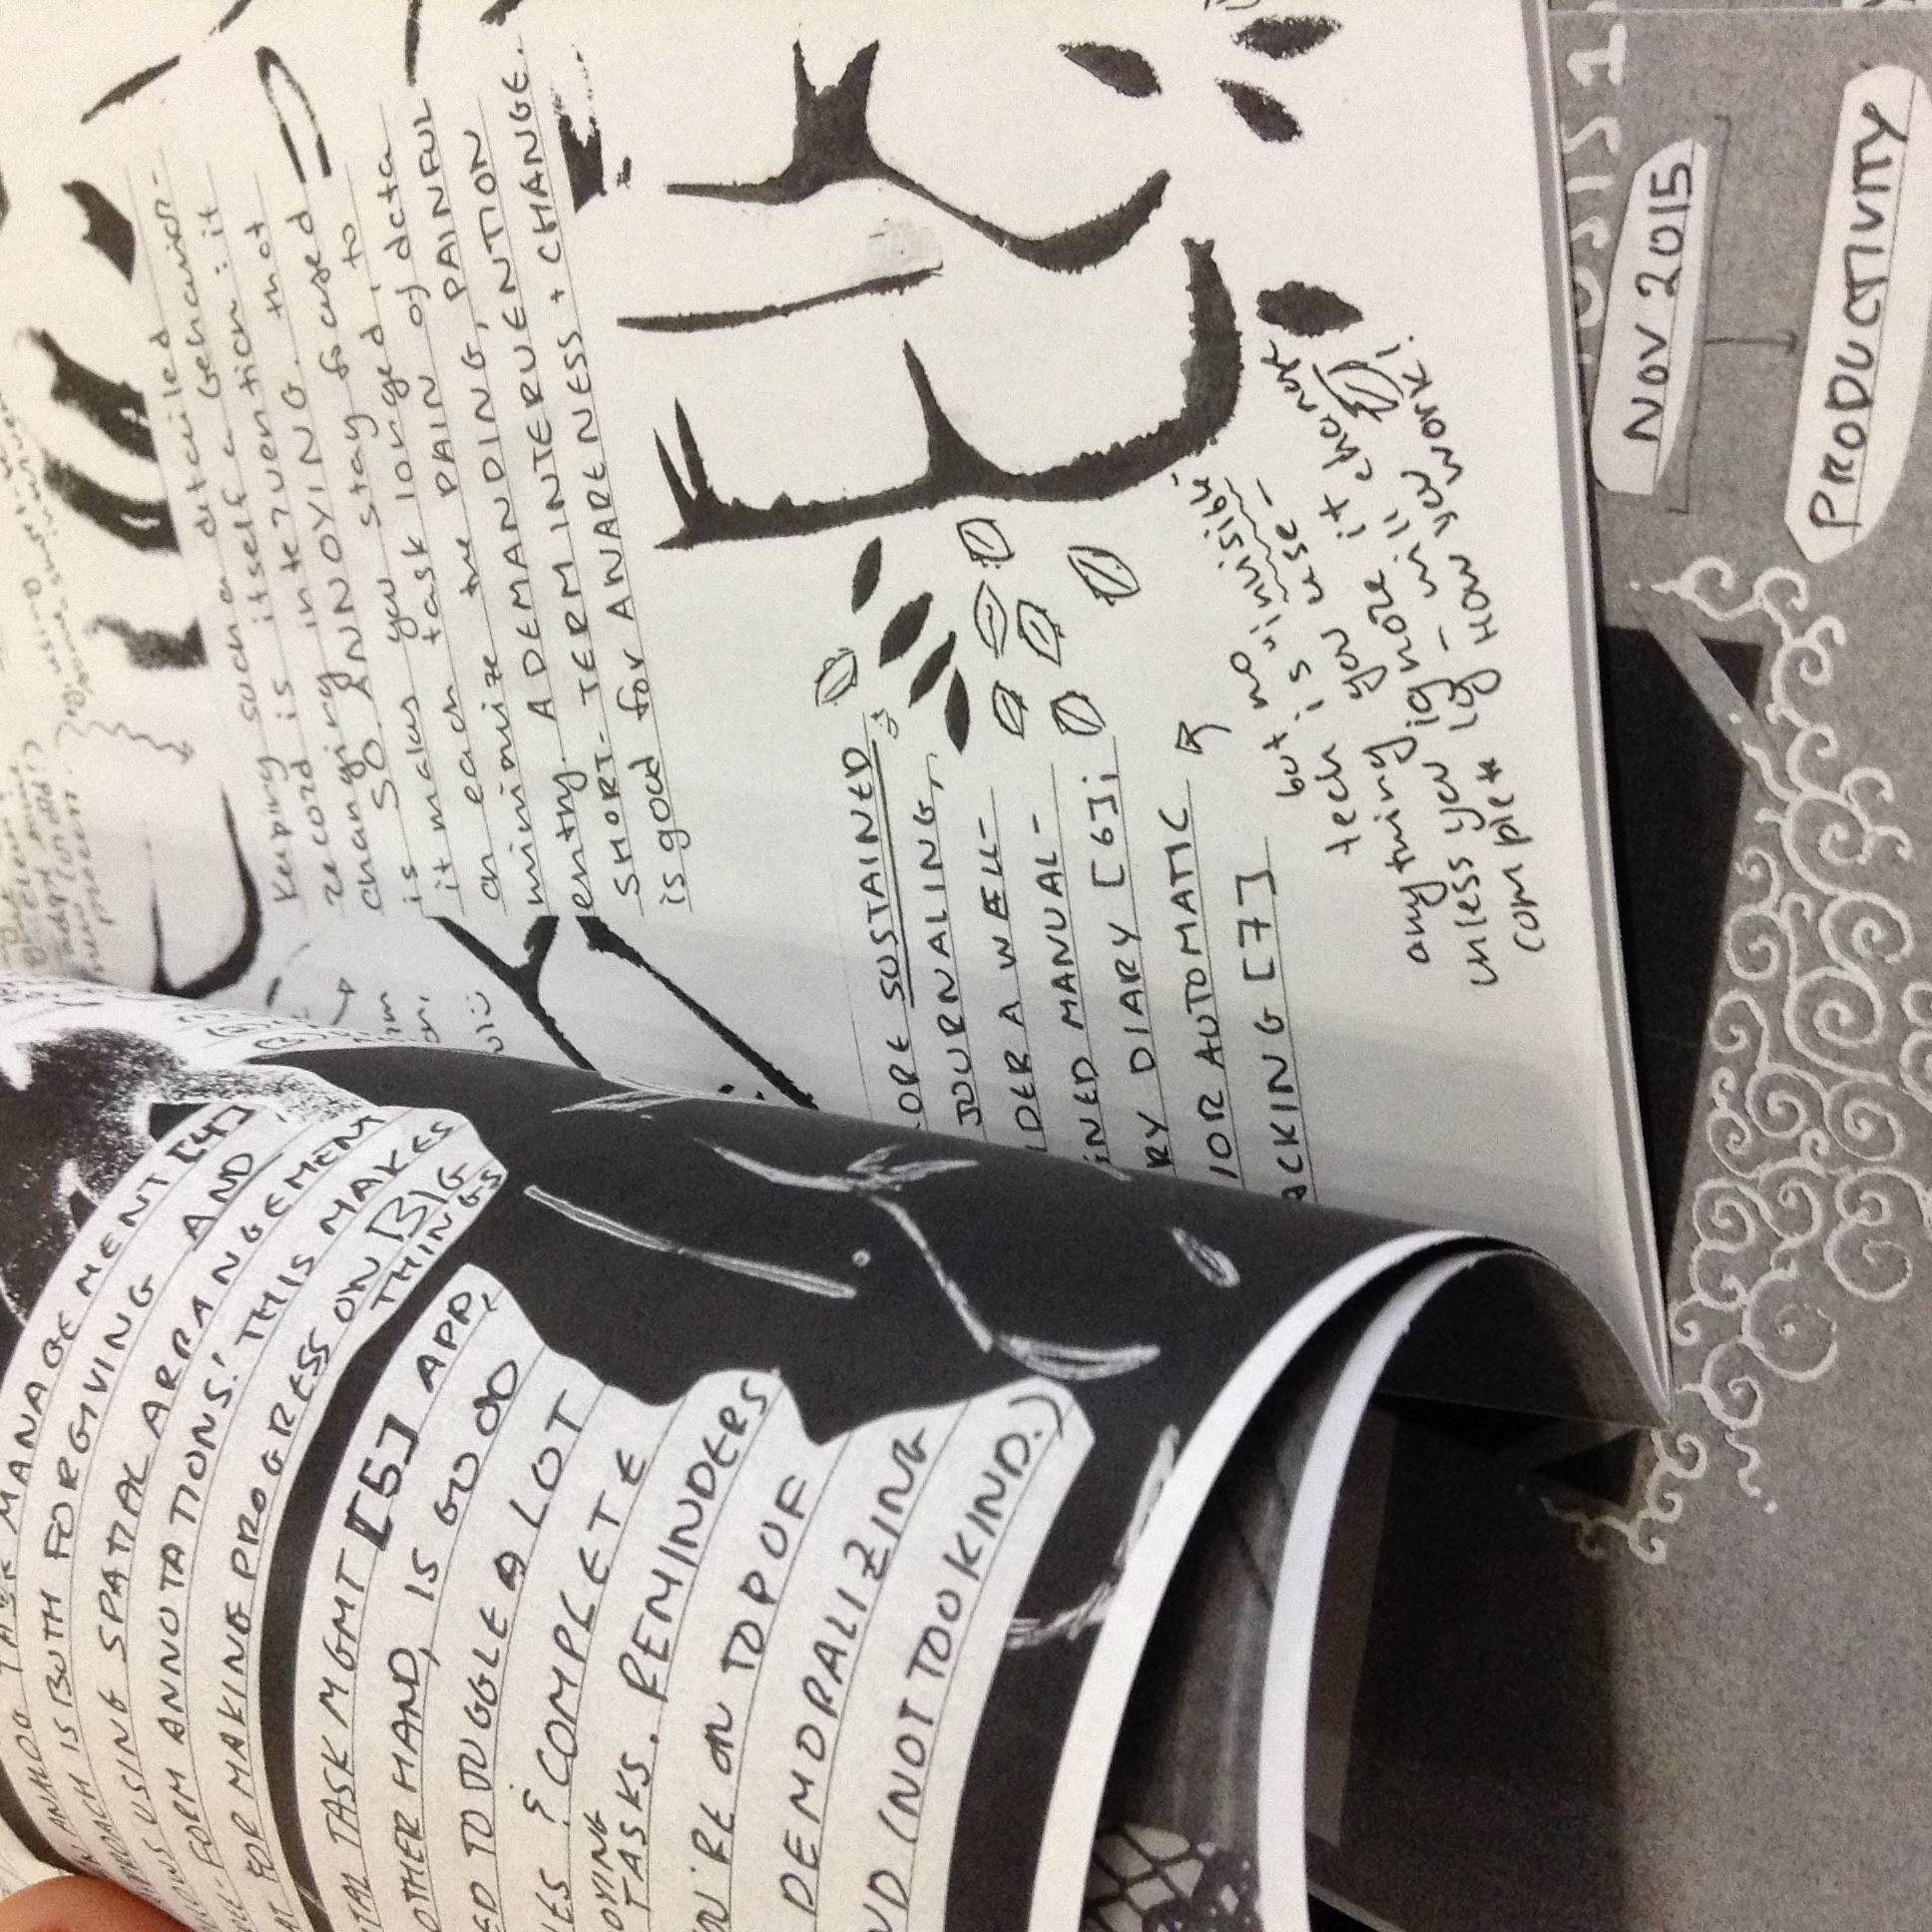 ANALOG TASK MANAGEMENT [4]
APPROACH IS BOTH FORGIVING AND
USING SPATIAL ARRANGEMENM
-FORM ANNOTATIONS! THIS MAKES
AT FOR MAKING PROGRESS ON BIG
THINGS
TAL TASK MGMT [5] APP,
OTHER HAND, IS GOOD
ED TO JUGGLE A LOT
ES & COMPLETE
OYING
TASKS. REMINDERS
OU'RE ON TOP OF
DEMORALIZING
ND (NOT TOO KIND.)
adapt some
new (odd!)
process.
eg, using
some short-te
interven
Keeping such a detailed
record is itself a behavior-
changing intervention: it
is SO ANNOYING. that
it makes you stay focused
on each task longed, to
minimize the PAIN of data
entry. A DEMANDING, PAINFUL
SHORT-TERM INTERVENTION
is good for AWARENESS + CHANGE.
ORE SUSTAINED
JOURNALING,
IDER A WELL-
GNED MANUAL-
RY DIARY [6];
IOR AUTOMATIC
ACKING [7]
but no
tech is "invisible"
anything you use -
unless you ignore it
completely - will change
HOW you
work!
OSIS 1
NOV 2015
PRODUCTIVITY